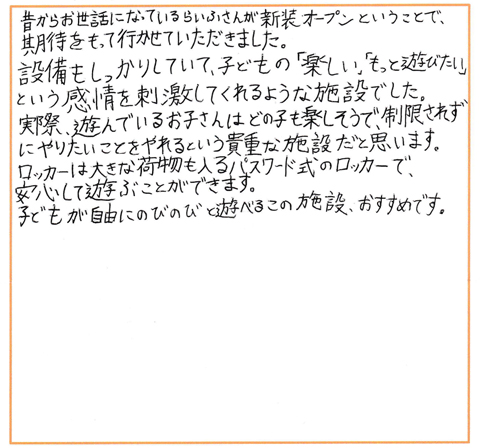 昔からお世話になっているらいふさんが新装オープンということで、
期待をもって行かせていただきました。
設備もしっかりしていて、子どもの「楽しい」「もっと遊びたい」
という感情を刺激してくれるような施設でした。
実際、遊んでいるお子さんはどの子も楽しそうで、制限されず
にやりたいことをやれるという貴重な施設だと思います。
ロッカーは大きな荷物も入るパスワード式のロッカーで、
安心して遊ぶことができます。
子どもが自由にのびのびと遊べるこの施設、おすすめです。